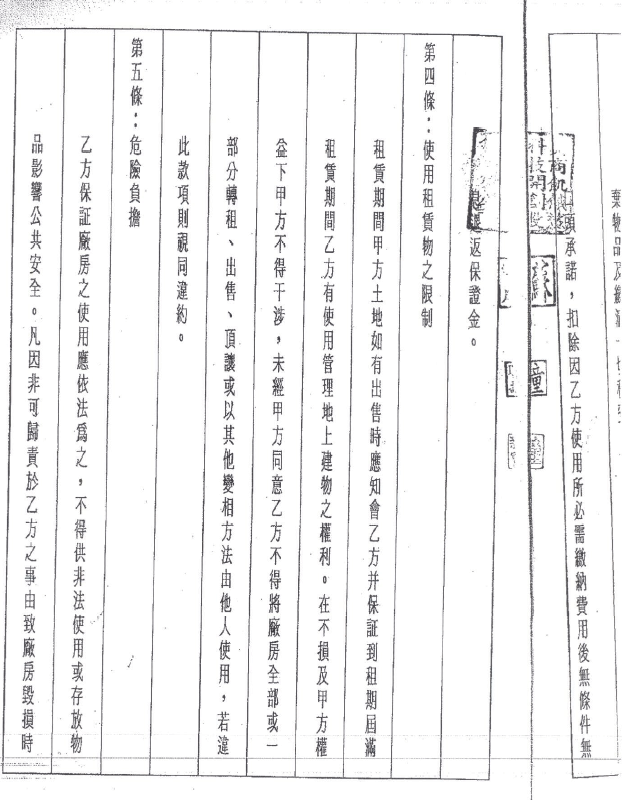 棄物品及
項承諾，扣除因乙方使用所必需繳納費用後無條件無
息退返保證金。
第四條：使用租賃物之限制
租賃期間甲方土地如有出售時應知會乙方并保証到租期屆滿
租賃期間乙方有使用管理地上建物之權利。在不損及甲方權
益下甲方不得干涉，未經甲方同意乙方不得將廠房全部或一
部分轉租、出售、頂讓或以其他變相方法由他人使用，若違
此款項則視同違約。
第五條：危險負擔
乙方保証廠房之使用應依法爲之，不得供非法使用或存放物
品影響公共安全。凡因非可歸責於乙方之事由致廠房毀損時